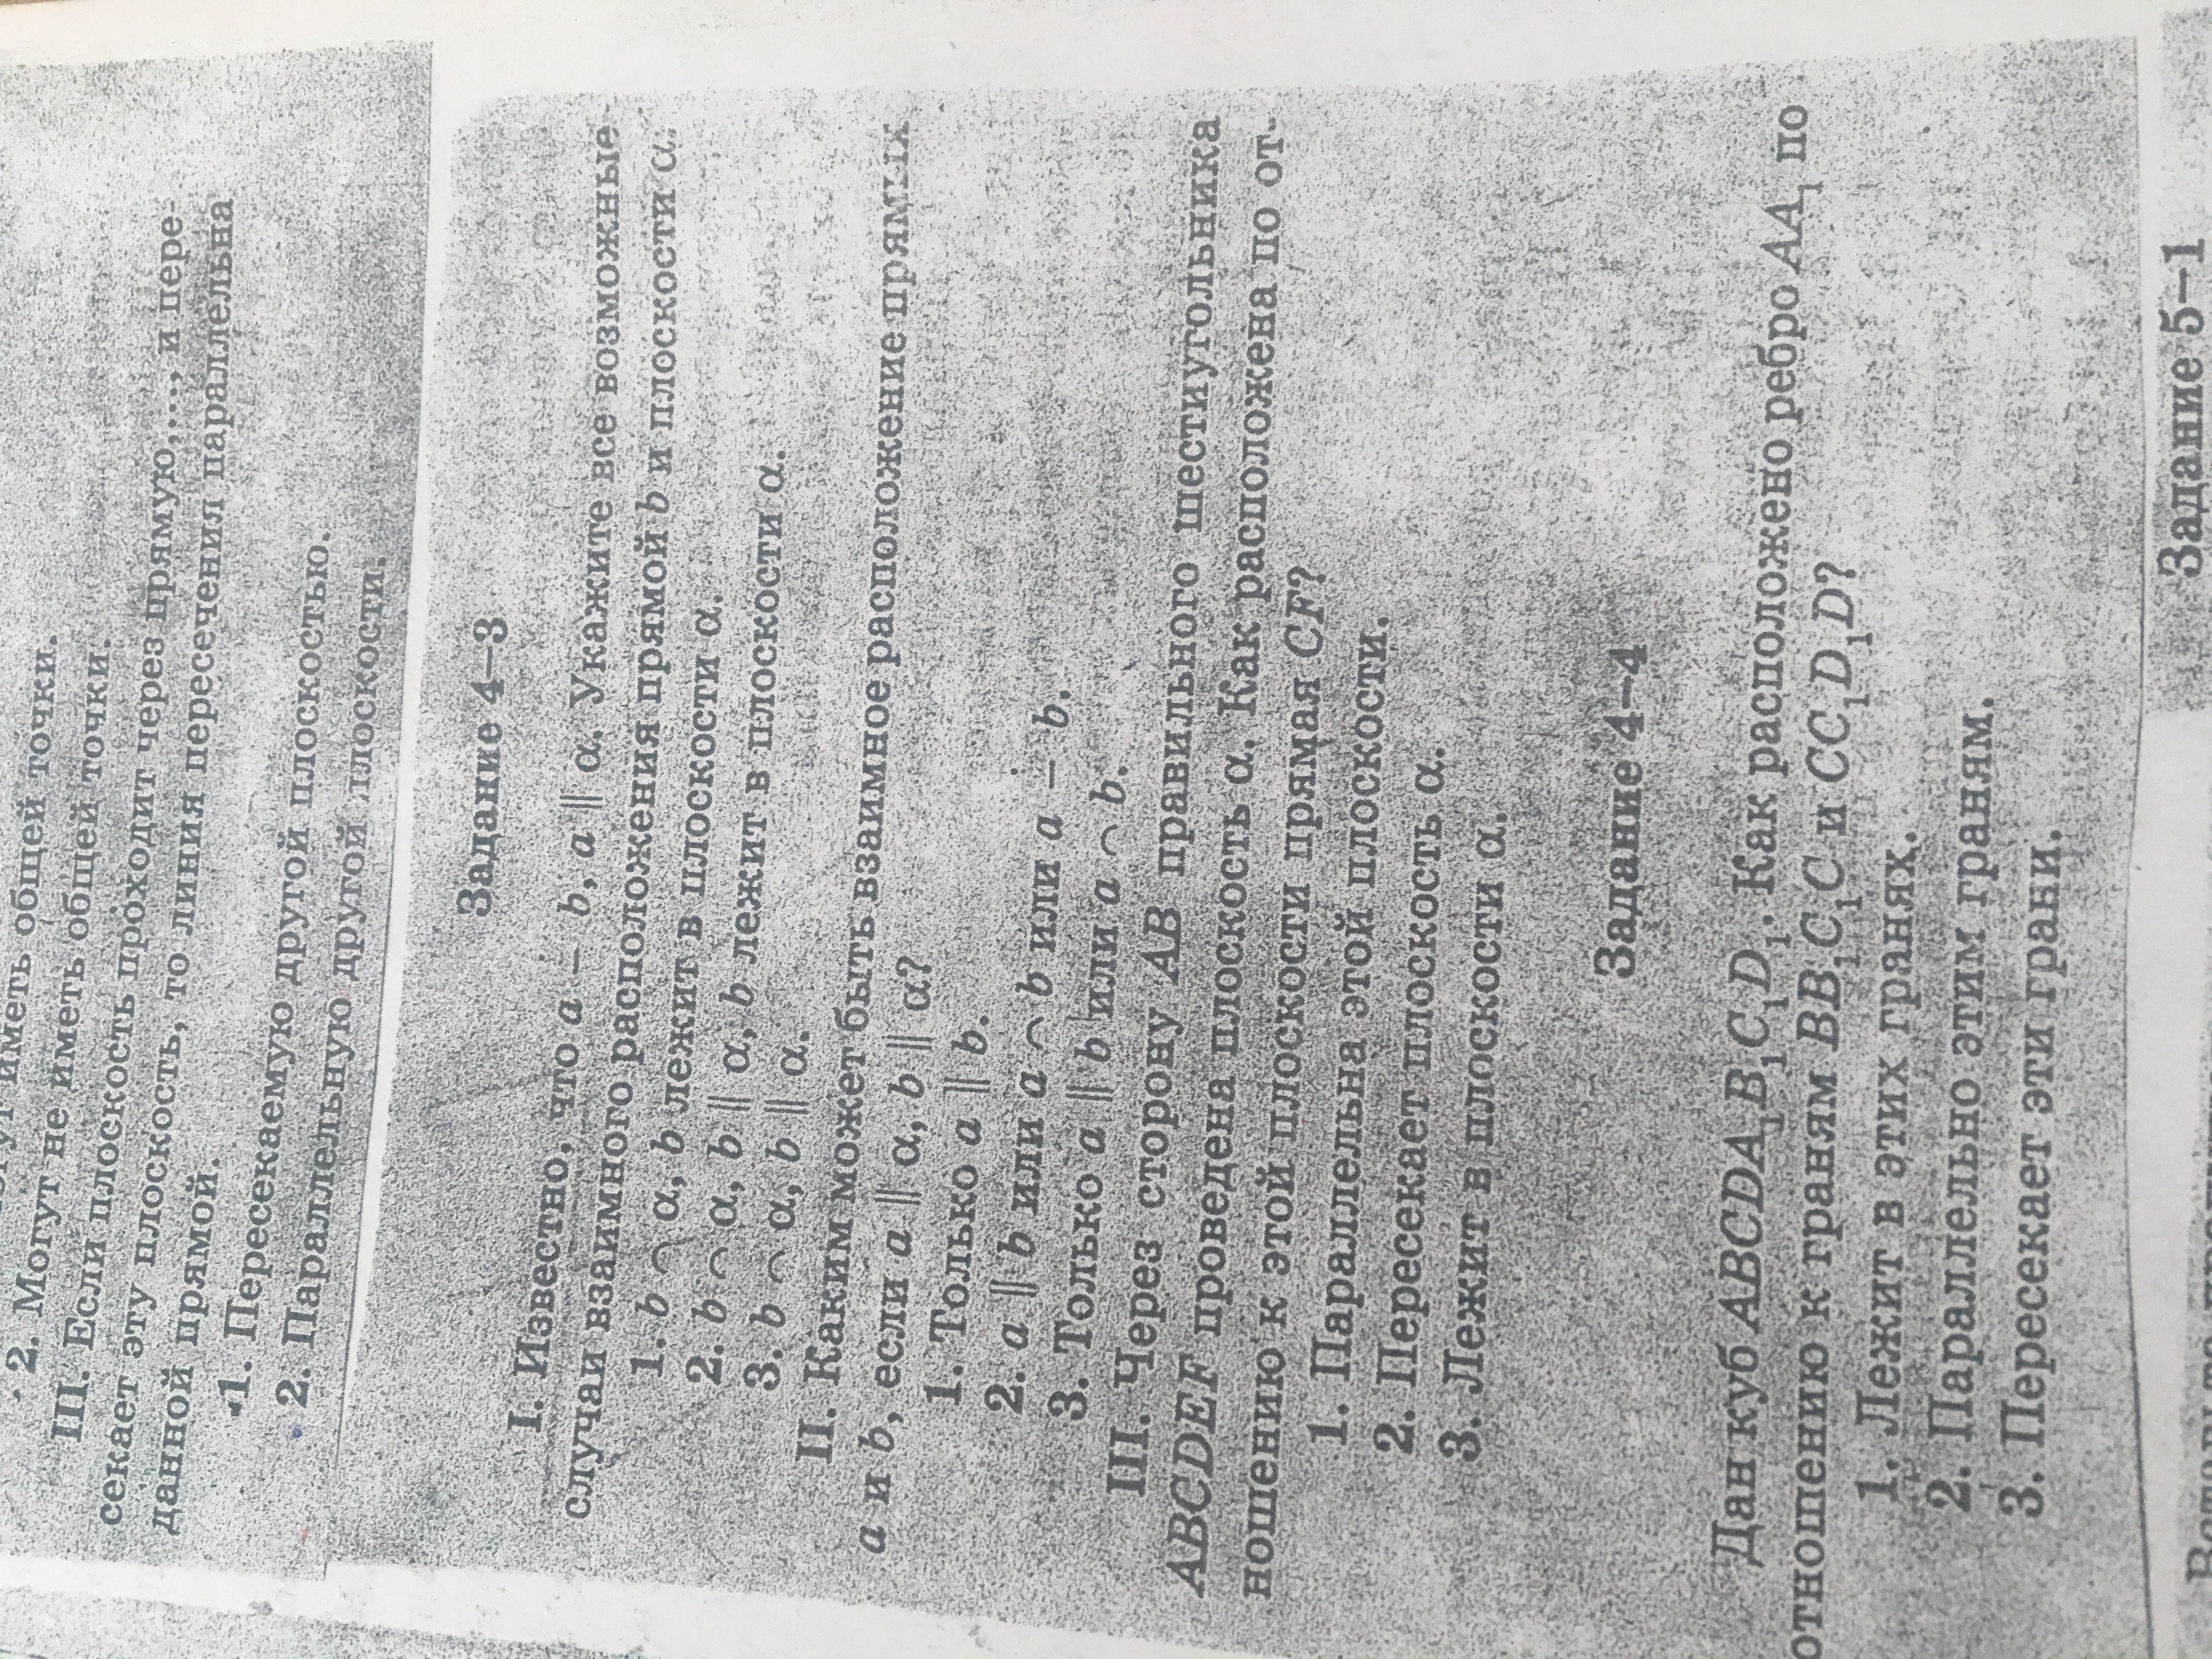 иметь общей точки.
2. Могут не иметь общей точки.
III. Если плоскость проходит через прямую,..., и пере-
секает эту плоскость, то линия пересечения параллельна
данной прямой.
1. Пересекаемую другой плоскостью.
2. Параллельную другой плоскости.
Задание 4–3
I. Известно, что a ∸ b, a ∥ α. Укажите все возможные
случаи взаимного расположения прямой b и плоскости α.
1. b ⌒ α, b лежит в плоскости α.
2. b ⌒ α, b ∥ α, b лежит в плоскости α.
3. b ⌒ α, b ∥ α.
II. Каким может быть взаимное расположение прямых
a и b, если a ∥ α, b ∥ α?
1. Только a ∥ b.
2. a ∥ b или a ⌒ b или a ∸ b.
3. Только a ∥ b или a ⌒ b.
III. Через сторону AB правильного шестиугольника
ABCDEF проведена плоскость α. Как расположена по от-
ношению к этой плоскости прямая CF?
1. Параллельна этой плоскости.
2. Пересекает плоскость α.
3. Лежит в плоскости α.
Задание 4–4
Дан куб ABCDA₁B₁C₁D₁. Как расположено ребро AA₁ по
отношению к граням BB₁C₁C и CC₁D₁D?
1. Лежит в этих гранях.
2. Параллельно этим граням.
3. Пересекает эти грани.
Задание 5–1